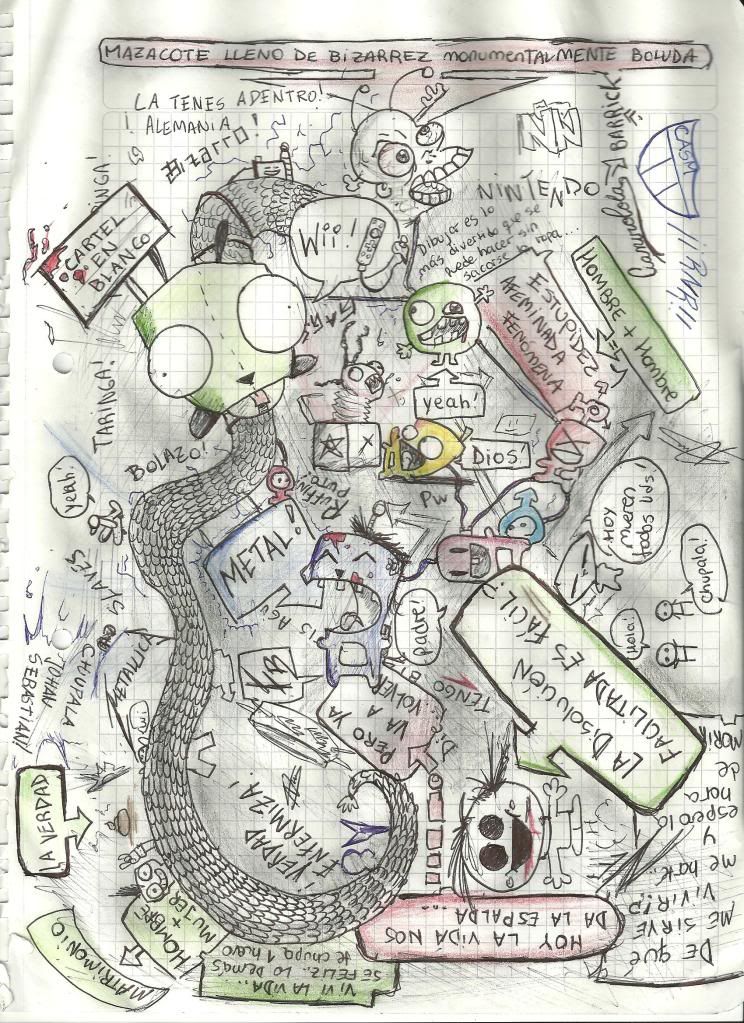 MAZACOTE LLENO DE BIZARREZ monumentalMENTE BOLUDA
LA TENES ADENTRO!
¡ALEMANIA
LO
Bizarro!
NN
NINTENDO
BARRICK
CASM
Dibujar es lo
más divertido que se
puede hacer sin
sacarse la ropa...
Wii!
CARTEL
EN
BLANCO
HOMBRE + Hombre
ESTUPIDEZ
AFEMINADA
FENOMENA
yeah!
TARINGA!
BOLAZO!
Dios!
PW
PUTO
yeah!
METAL
HOY
mueren
todos uds!
chupala!
Hola!
padre!
LA DISOLUCIÓN
FACILITADA ES FÁCIL?
SLAVES
CHUPALA
JOHAN
SEBASTIAN!
METALLICA
TENGO
PERO YA
VA A
VOLVER
¡VERDAD
ENFERMIZA!
LA VERDAD
HOMBRE
+
MUJER
MATRIMONIO
VIVI LA VIDA...
SE FELIZ. LO DEMAS
te chupa 1 huevo
HOY LA VIDA NOS
DA LA ESPALDA...
DE QUÉ
ME SIRVE
VIVIR!?
me hare...
y
esperala
nara
de
MORIR